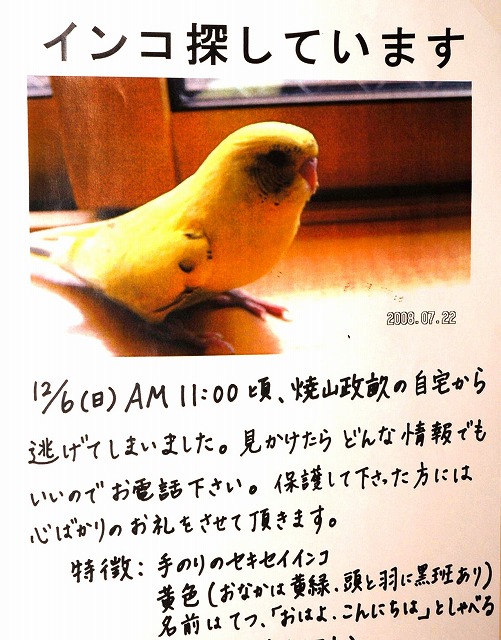 インコ探しています
2008.07.22
12/6(日)AM 11:00頃、焼山政畝の自宅から
逃げてしまいました。見かけたらどんな情報でも
いいのでお電話下さい。保護して下さった方には
心ばかりのお礼をさせて頂きます。
特徴:手のりのセキセイインコ
黄色(おなかは黄緑.頭と羽に黒班あり)
名前はてつ、「おはよ.こんにちは」としゃべる